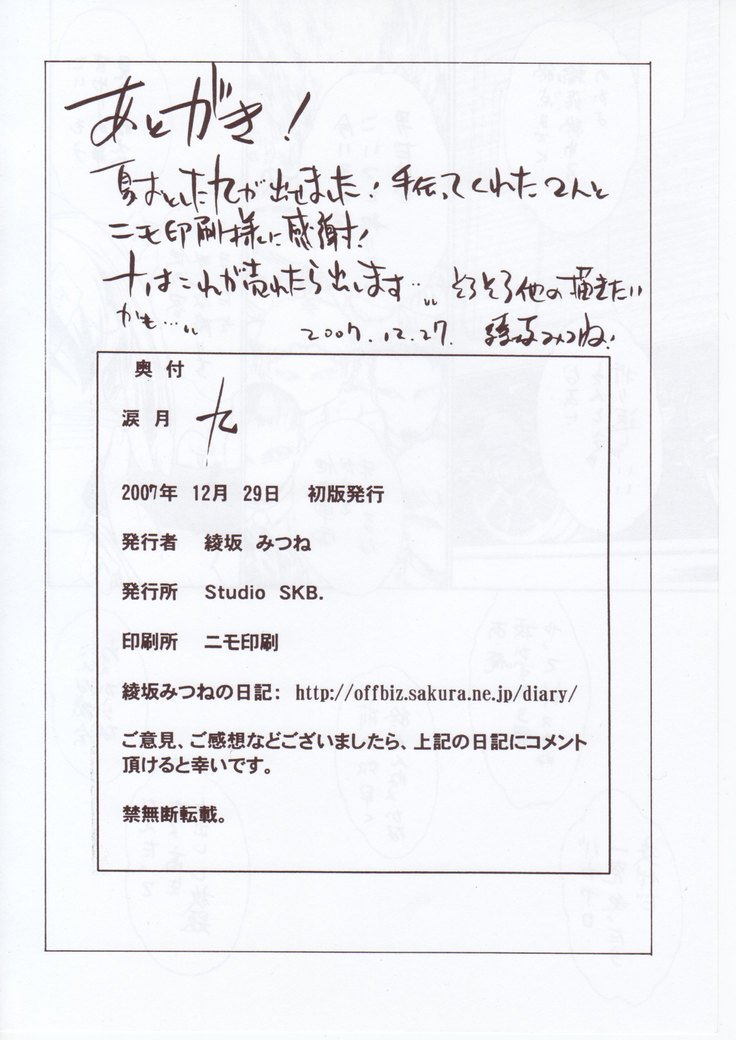 あとがき!
夏おとした九が出せました! 手伝ってくれた2人と
ニモ印刷様に感謝!
十はこれが売れたら出します…、、 そろそろ他の描きたい
かも…、、 2007.12.27. 綾坂みつね!
奥付
涙月 九
2007年 12月 29日 初版発行
発行者 綾坂 みつね
発行所 Studio SKB.
印刷所 ニモ印刷
綾坂みつねの日記: http://offbiz.sakura.ne.jp/diary/
ご意見、ご感想などございましたら、上記の日記にコメント
頂けると幸いです。
禁無断転載。